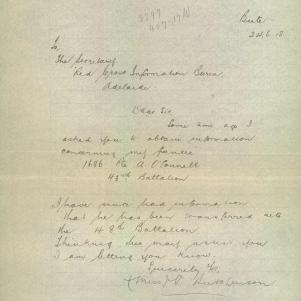 Bute
24.6.18.
To
The Secretary
Red Cross Information Bureau
Adelaide
Dear Sir
Some time ago I
asked you to obtain information
concerning my fiancee
1686 Pte A. O'Connell
43rd Battalion
I have since had information
that he has been transferred into
the 48th Battalion.
Thinking this may assist you
I am letting you know.
Sincerely yrs.
(Miss)